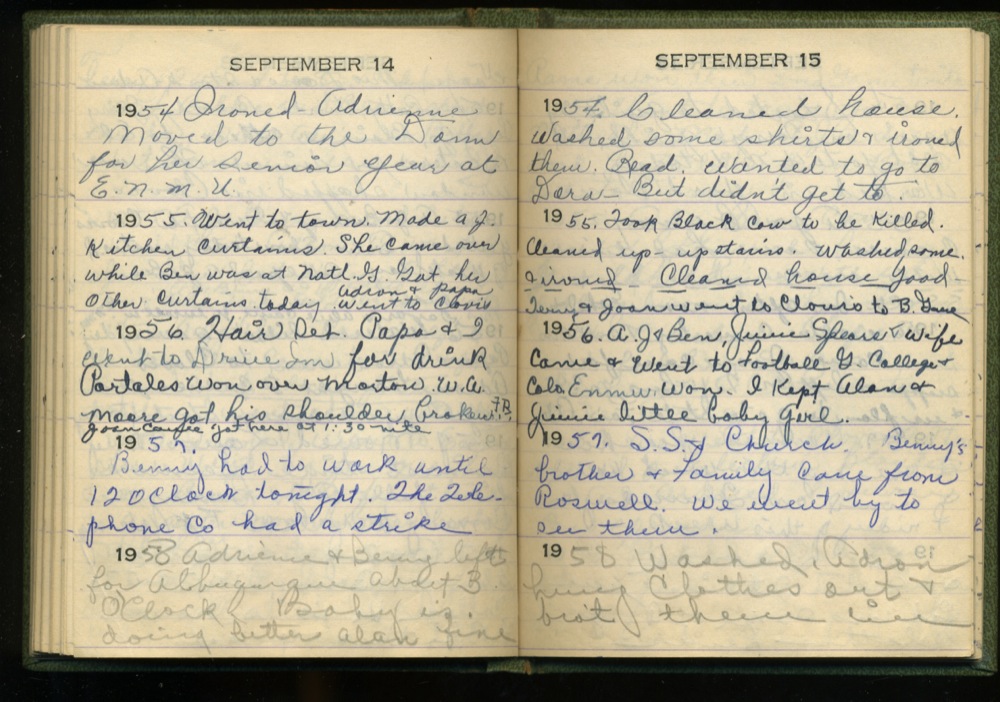 SEPTEMBER 14
1954 Ironed - Adrienne
Moved to the Dorm
for her senior year at
E.N.M.U.
1955. Went to town. Made a J.
Kitchen curtains. She came over
while Ben was at Natl. G. Got her
Other Curtains today. Adron & Papa went to Clovis
1956. Hair Set. Papa & I
went to Drive Inn for drink
Portales Won over Morton. W.A.
Moore got his shoulder broken. F.B.
Joan came got here at 1:30 nite
1957.
Benny had to work until
12 OClock tonight. The Tele-
phone Co had a strike
1958 Adrienne & Benny left
for Albuquerque about 3
OClock. Baby is
doing better alan fine
SEPTEMBER 15
1954. Cleaned house.
Washed some shirts & ironed
them. Read. Wanted to go to
Dora - But didn't get to.
1955. Took Black Cow to be Killed.
Cleaned up - upstairs. Washed some
& ironed - Cleaned house good -
& Joan went to Clovis to B. Game
1956. A.J & Ben, Jimmie Spears & wife
Came & Went to Football G. College &
Colo. Enmu. Won. I Kept Alan &
Jimmie little baby Girl.
1957. S.S. & Church. Benny's
brother & Family Came from
Roswell. We went by to
see them.
1958 Washed. Adron
hung Clothes out &
brot them in